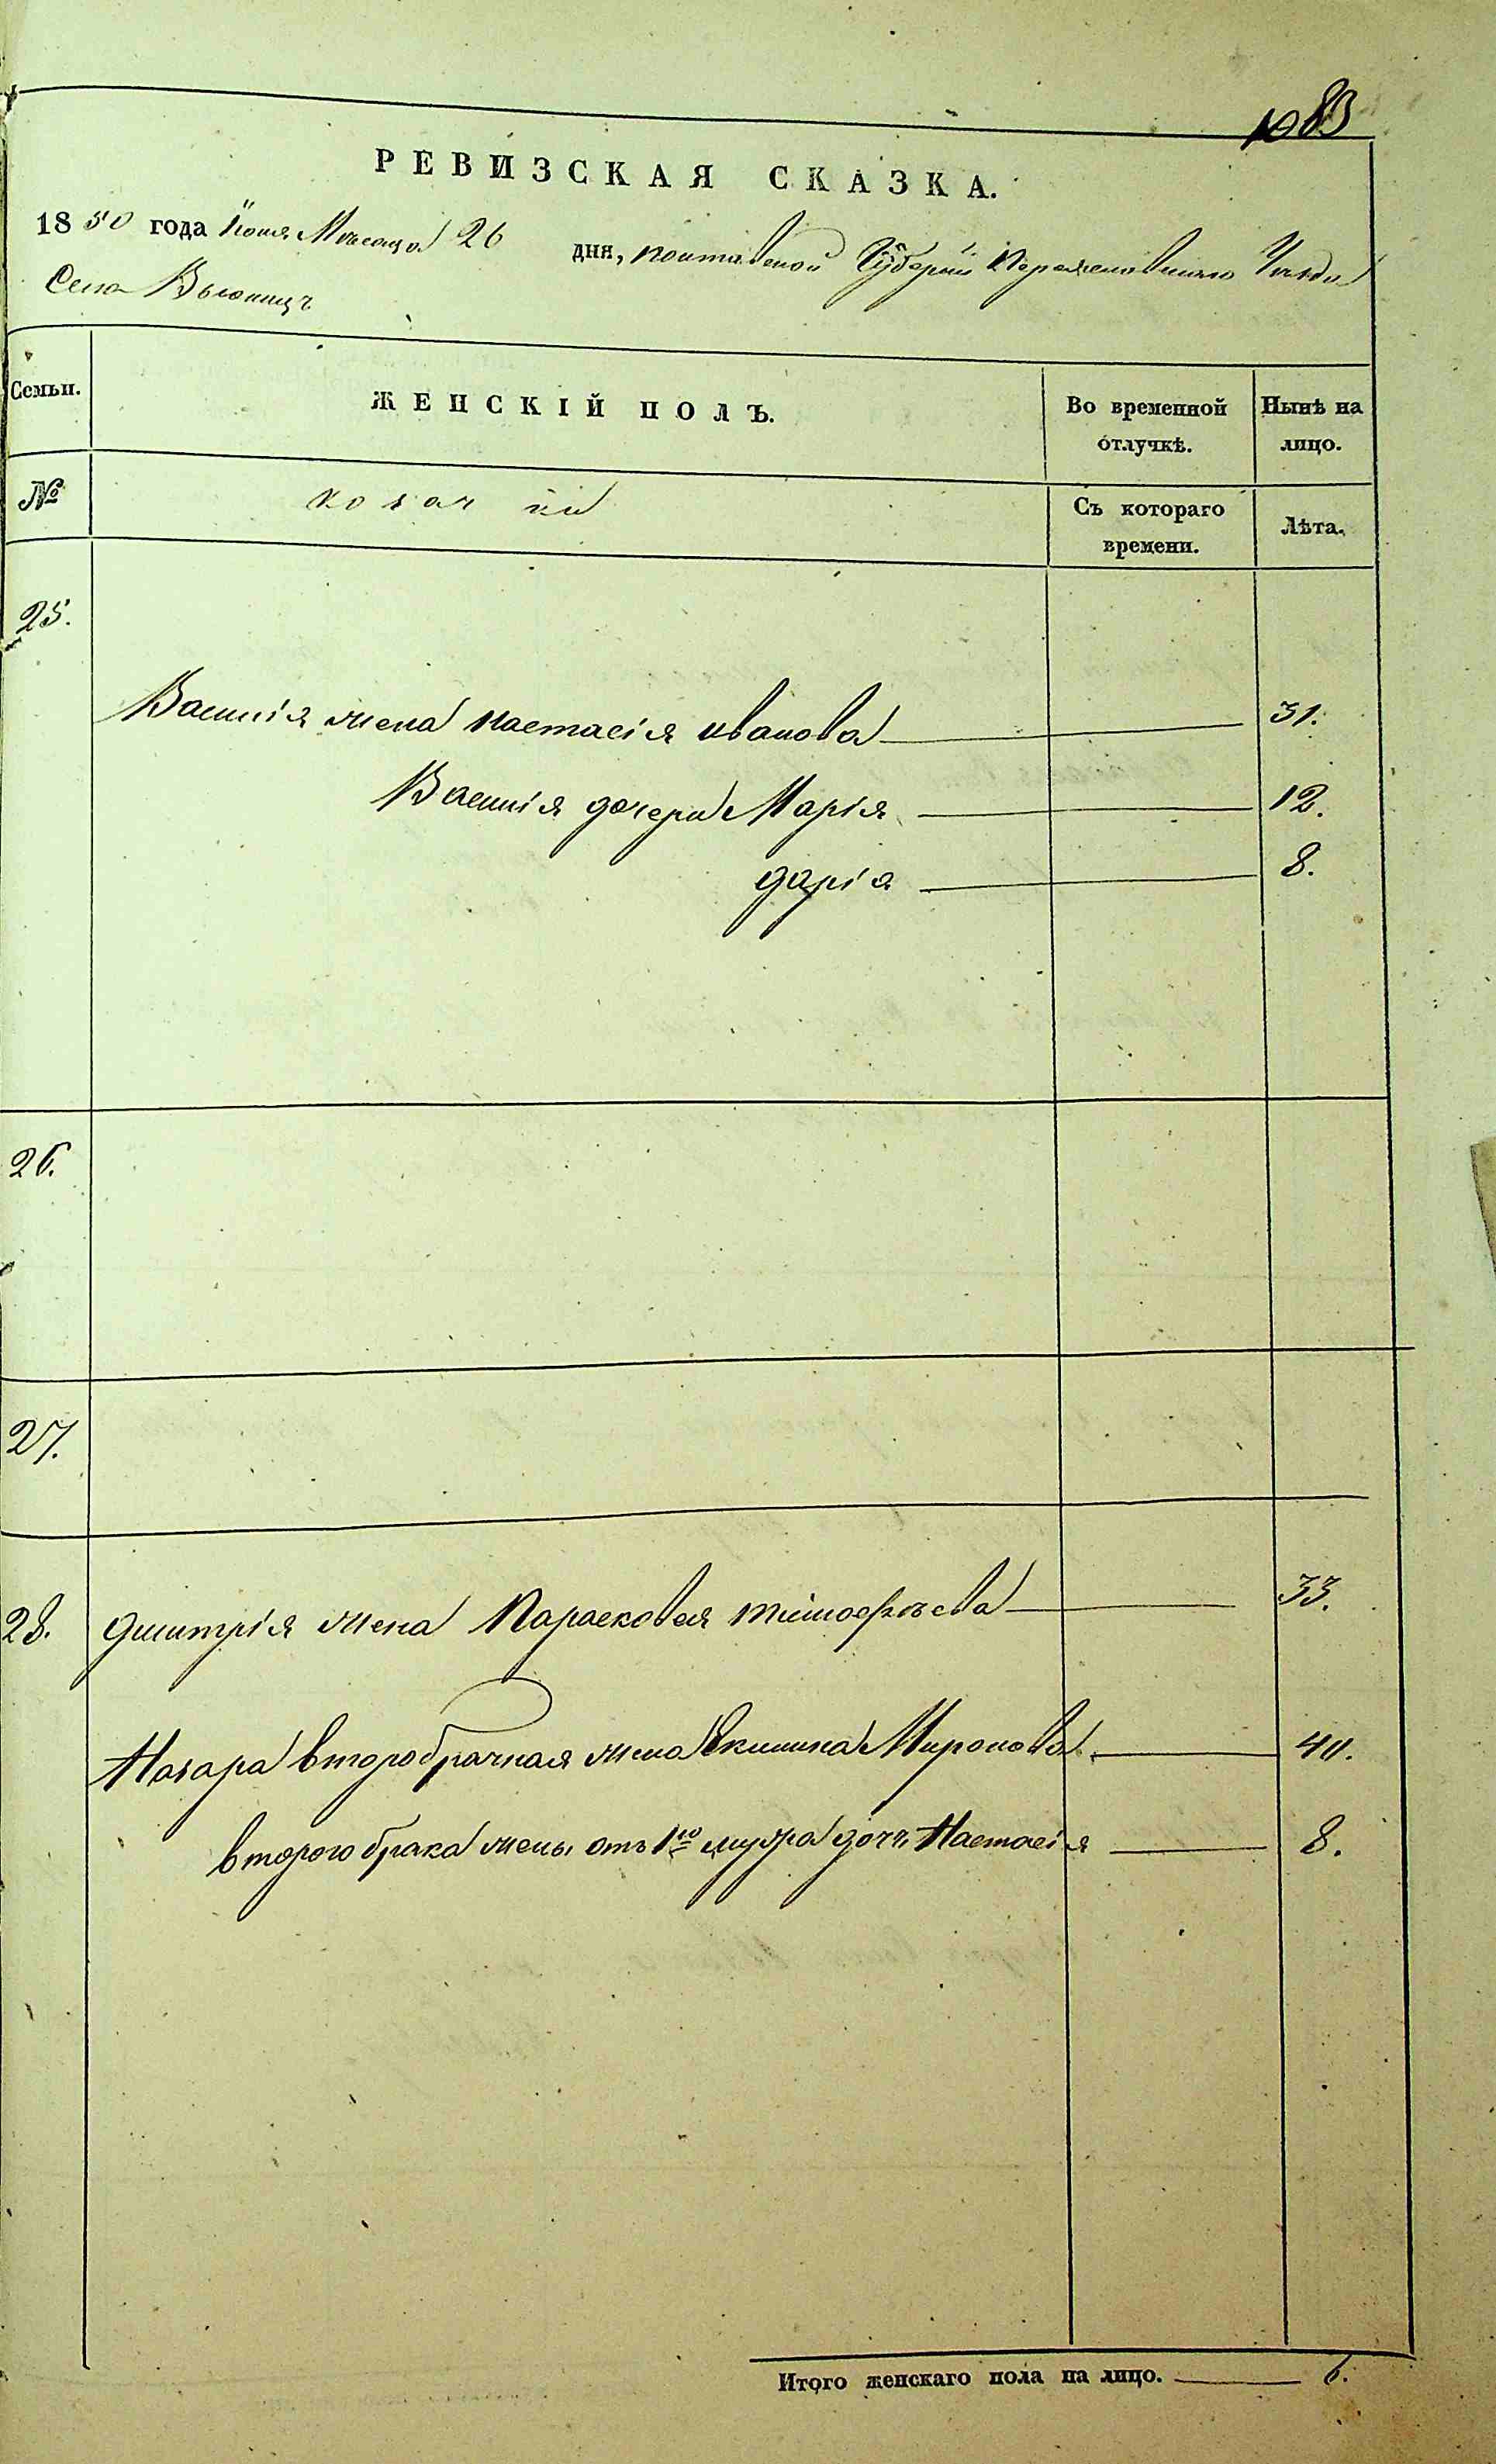 1083
РЕВИЗСКАЯ СКАЗКА.
1850 года Июня Месяца 26 дня, полтавской Губерніи Переяславскаго Уезда
Села Вьюнищъ
Семьи. ЖЕНСКІЙ ПОЛЪ. Во временной отлучкѣ. Нынѣ на лицо.
№ козачки Съ котораго времени. Лѣта.
25.
Василія жена настасія иванова 31.
Василія дочери Марія 12.
дарія 8.
26.
27.
28. дмитрія жена Парасковея тимофѣева 33.
Назара второбрачная жена Екилина Миронова 40.
второго брака жены отъ 1го мужа дочь Настасія 8.
Итого женскаго пола на лицо. 6.